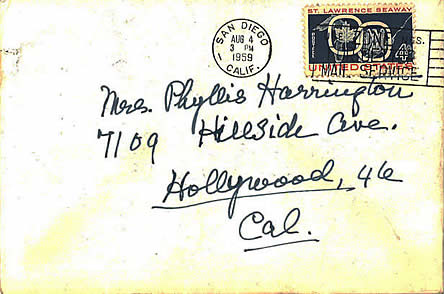 SAN DIEGO
AUG 4
3 PM
1959
1
CALIF.
ST. LAWRENCE SEAWAY
4¢
UNITED STATES
MAIL SERVICE
Mrs. Phyllis Harrington
7109 Hillside Ave.
Hollywood, 46
Cal.